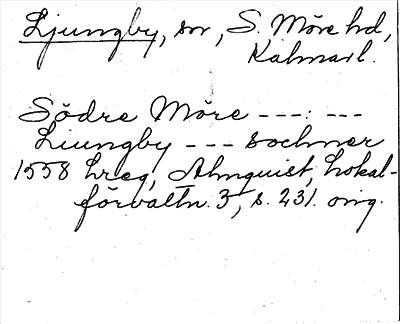 Ljungby, sn, S. Möre hd,
Kalmar l.
Södre Möre ---:---
Liungby --- sochner
1558 hreg, Almquist, Lokal-
förvaltn. 3, s. 231. orig.